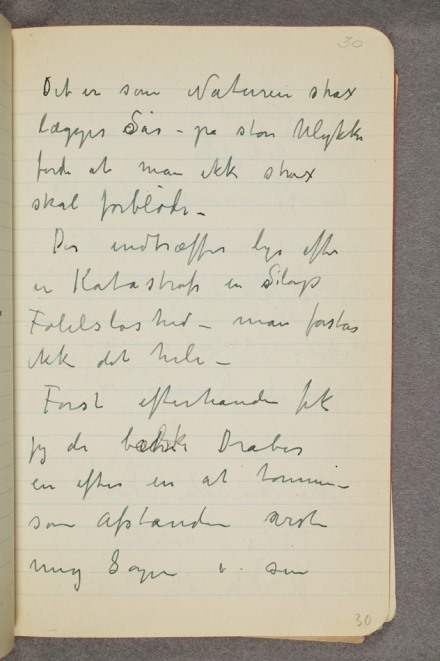 30
Det er som Naturen strax
lægger Sår – på store Ulykker
forde at man ikk strax
skal forbløde –
Der indtræffer lige efter
en Katastrofe en Slags
Følelsløshed – man forstår
ikk det hele –
Først efterhanden fik
jeg de Draber
en efter en at tømme –
som Afstanden
mig i sin
30